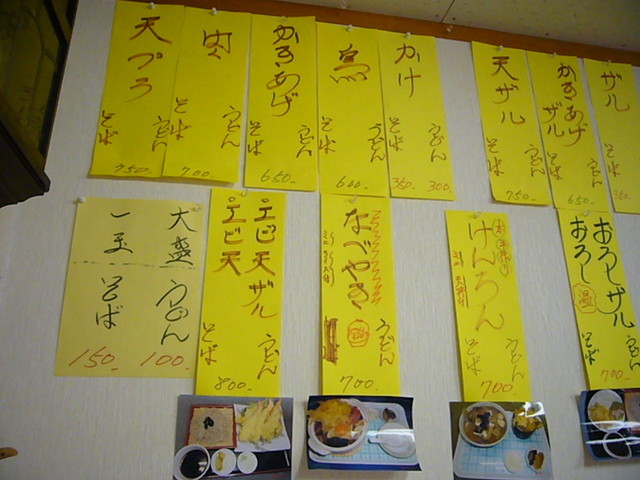 天プラ
うどん
そば
750.-
肉
うどん
そば
700
かきあげ
うどん
そば
650.-
鳥
うどん
そば
600.-
かけ
うどん
そば
350 300.
天ザル
うどん
そば
750.-
かきあげ
ザル
うどん
そば
650.-
ザル
そば
大盛 うどん
100.
一玉 そば
150.
エビ天ザル
エビ天
うどん
そば
800.-
なべやき
うどん
700.-
けんちん
うどん
そば
700
おろしザル
おろし
温
うどん
そば
700.-